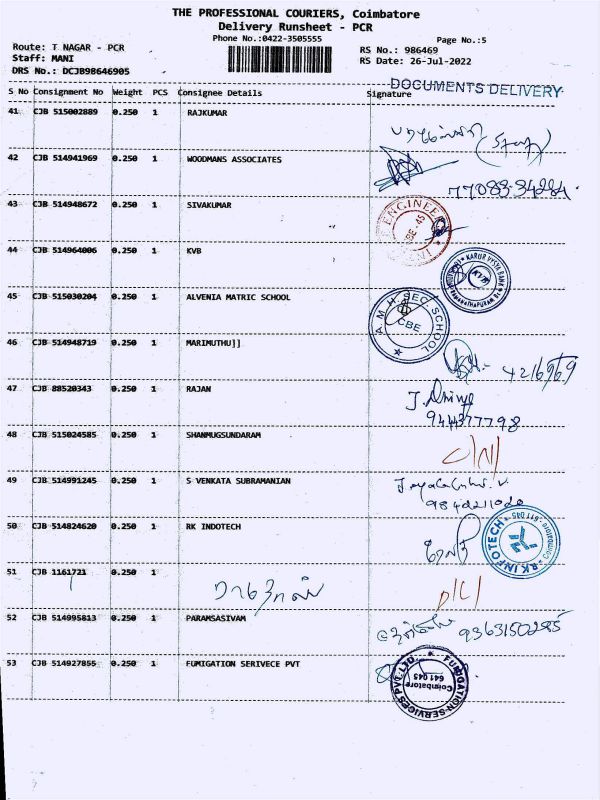 THE PROFESSIONAL COURIERS, Coimbatore
Delivery Runsheet - PCR
Phone No.:0422-3505555
Page No.:5
Route: T NAGAR - PCR
RS No.: 986469
Staff: MANI
RS Date: 26-Jul-2022
DRS No.: DCJB98646905
DOCUMENTS DELIVERY
S No Consignment No Weight PCS Consignee Details Signature
41 CJB 515002889 0.250 1 RAJKUMAR
42 CJB 514941969 0.250 1 WOODMANS ASSOCIATES
77088-34284
43 CJB 514948672 0.250 1 SIVAKUMAR
ENGINEER
44 CJB 514964006 0.250 1 KVB
KARUR VYSYA BANK
45 CJB 515030204 0.250 1 ALVENIA MATRIC SCHOOL
A.M.H. SEC. SCHOOL
CBE
46 CJB 514948719 0.250 1 MARIMUTHU]]
4216969
47 CJB 88520343 0.250 1 RAJAN
9444377798
48 CJB 515024585 0.250 1 SHANMUGSUNDARAM
49 CJB 514991245 0.250 1 S VENKATA SUBRAMANIAN
9842211020
50 CJB 514824620 0.250 1 RK INDOTECH
RK INFOTECH
Coimbatore
51 CJB 1161721 0.250 1
52 CJB 514995813 0.250 1 PARAMSASIVAM
9363150285
53 CJB 514927855 0.250 1 FUMIGATION SERIVECE PVT
SERVICES PVT. LTD.
Coimbatore
641 045